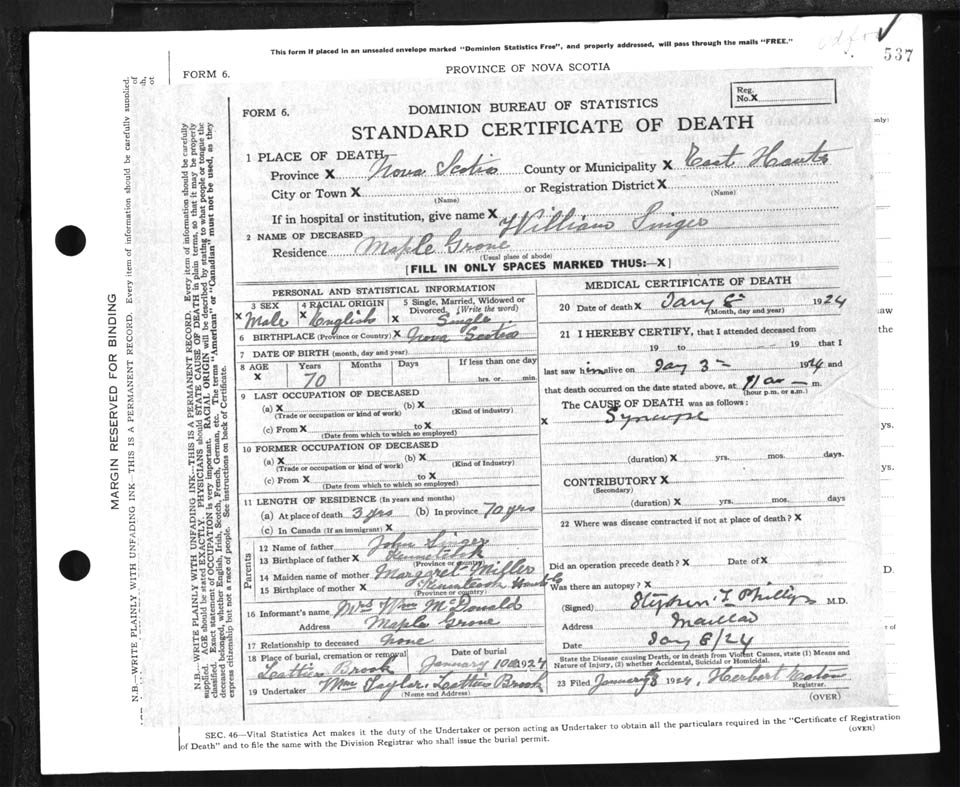 This form if placed in an unsealed envelope marked "Dominion Statistics Free", and properly addressed, will pass through the mails "FREE."
537
PROVINCE OF NOVA SCOTIA
FORM 6.
FORM 6.
DOMINION BUREAU OF STATISTICS
Reg. No. X
STANDARD CERTIFICATE OF DEATH
1 PLACE OF DEATH
Province X Nova Scotia County or Municipality X East Hants
City or Town X or Registration District X
(Name) (Name)
If in hospital or institution, give name X
2 NAME OF DECEASED William Singer
Residence Maple Grove
(Usual place of abode)
[FILL IN ONLY SPACES MARKED THUS:—X]
PERSONAL AND STATISTICAL INFORMATION
3 SEX X Male
4 RACIAL ORIGIN X English
5 Single, Married, Widowed or Divorced. (Write the word) X Single
6 BIRTHPLACE (Province or Country) X Nova Scotia
7 DATE OF BIRTH (month, day and year)
8 AGE X Years 70 Months Days If less than one day hrs. or min.
9 LAST OCCUPATION OF DECEASED
(a) X (b) X
(Trade or occupation or kind of work) (Kind of industry)
(c) From X to X
(Date from which to which so employed)
10 FORMER OCCUPATION OF DECEASED
(a) X (b) X
(Trade or occupation or kind of work) (Kind of Industry)
(c) From X to X
(Date from which to which so employed)
11 LENGTH OF RESIDENCE (In years and months)
(a) At place of death 3 yrs (b) In province 70 yrs
(c) In Canada (If an immigrant) X
Parents
12 Name of father John Singer
13 Birthplace of father X
(Province or country)
14 Maiden name of mother Margaret Miller
15 Birthplace of mother X
(Province or country)
16 Informant's name Mrs Wm McDonald
Address Maple Grove
17 Relationship to deceased None
18 Place of burial, cremation or removal Date of burial
Brook January 10th 1924
19 Undertaker Wm Taylor, Brook
(Name and Address)
MEDICAL CERTIFICATE OF DEATH
20 Date of death X Jany 8 1924
(Month, day and year)
21 I HEREBY CERTIFY, that I attended deceased from
19 to 19 that I
last saw him alive on Jany 3 1924 and
that death occurred on the date stated above, at m.
(hour p.m. or a.m.)
The CAUSE OF DEATH was as follows:
X Syncope
(duration) X yrs. mos. days.
CONTRIBUTORY X
(Secondary)
(duration) X yrs. mos. days
22 Where was disease contracted if not at place of death? X
Did an operation precede death? X Date of X
Was there an autopsy? X
(Signed) Stephen Phillips M.D.
Address Maitland
Date Jany 8/24
State the Disease causing Death, or in death from Violent Causes, state (1) Means and
Nature of Injury, (2) whether Accidental, Suicidal or Homicidal.
23 Filed January 8 1924, Herbert Eaton
Registrar.
(OVER)
SEC. 46—Vital Statistics Act makes it the duty of the Undertaker or person acting as Undertaker to obtain all the particulars required in the "Certificate of Registration
of Death" and to file the same with the Division Registrar who shall issue the burial permit.
(OVER)
MARGIN RESERVED FOR BINDING
N.B—WRITE PLAINLY WITH UNFADING INK THIS IS A PERMANENT RECORD. Every item of information should be carefully supplied.
N.B.—WRITE PLAINLY WITH UNFADING INK—THIS IS A PERMANENT RECORD. Every item of information should be carefully
supplied. AGE should be stated EXACTLY. PHYSICIANS should STATE CAUSE OF DEATH in plain terms, so that it may be properly
classified. Exact statement of OCCUPATION is very important. RACIAL ORIGIN will be described by stating to what people or tongue the
deceased belonged, whether English, Irish, Scotch, French, German, etc. The terms "American" or "Canadian" must not be used, as they
express citizenship but not a race of people. See instructions on back of Certificate.